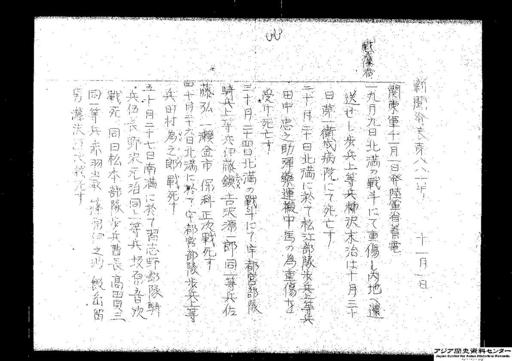 新聞発表第八八二号 十一月一日
戦傷者
関東軍十一月一日発陸軍省着電
一九月九日北満の戦斗にて重傷し内地へ還
送せし歩兵上等兵柳沢木治は十月三十
日第一衛戍病院にて死亡す
二十月二十日北満に於て松江部隊歩兵上等兵
田中忠之助弾薬運搬中馬の為重傷を
受け死亡す
三十月二十四日北満の戦斗にて宇都宮部隊
騎兵上等兵伊藤 古沢 一郎 同一等兵佐
藤弘一 瀬金市 保科正次戦死す
四十月二十六日北満に於て宇都宮部隊歩兵上等
兵田村為之郎戦死す
五十月二十七日南満に於て習志野部隊騎
兵伍長野沢元治 同上一等兵 音次
戦死 同日松本部隊歩兵曹長高田
同一等兵赤羽
戦死す
アジア歴史資料センター
Japan Center for Asian Historical Records